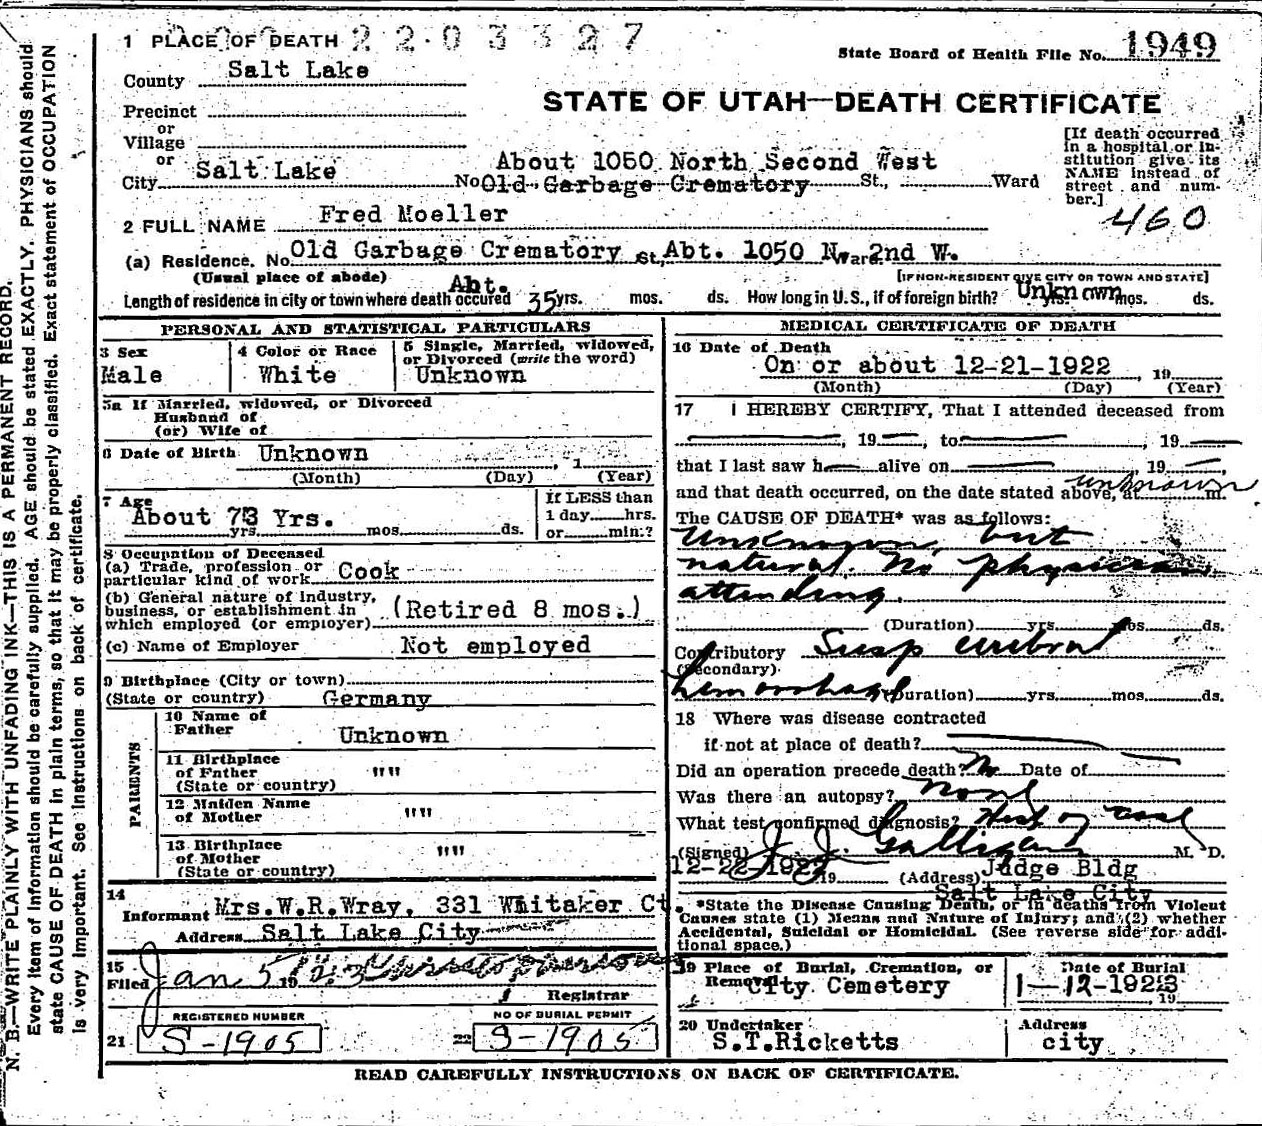 N. B.—WRITE PLAINLY WITH UNFADING INK—THIS IS A PERMANENT RECORD.
Every item of information should be carefully supplied. AGE should be stated EXACTLY. PHYSICIANS should
state CAUSE OF DEATH in plain terms, so that it may be properly classified. Exact statement of OCCUPATION
is very important. See instructions on back of certificate.
1 PLACE OF DEATH 2203327
State Board of Health File No. 1949
County Salt Lake
STATE OF UTAH—DEATH CERTIFICATE
Precinct
or
Village
or
City Salt Lake
About 1050 North Second West
No Old Garbage Crematory St., Ward
[If death occurred
in a hospital or in-
stitution give its
NAME instead of
street and num-
ber.]
460
2 FULL NAME Fred Moeller
(a) Residence. No Old Garbage Crematory St, Abt. 1050 N. Ward 2nd W.
(Usual place of abode)
[IF NON-RESIDENT GIVE CITY OR TOWN AND STATE]
Length of residence in city or town where death occured Abt. 35 yrs. mos. ds. How long in U.S., if of foreign birth? Unknown yrs. mos. ds.
PERSONAL AND STATISTICAL PARTICULARS
3 Sex
Male
4 Color or Race
White
5 Single, Married, widowed,
or Divorced (write the word)
Unknown
5a If Married, widowed, or Divorced
Husband of
(or) Wife of
6 Date of Birth Unknown , 1
(Month) (Day) (Year)
7 Age
About 73 Yrs.
yrs. mos. ds.
if LESS than
1 day hrs.
or min.?
8 Occupation of Deceased
(a) Trade, profession or
particular kind of work Cook
(b) General nature of industry,
business, or establishment in
which employed (or employer) (Retired 8 mos.)
(c) Name of Employer Not employed
9 Birthplace (City or town)
(State or country) Germany
PARENTS
10 Name of
Father Unknown
11 Birthplace
of Father """"
(State or country)
12 Maiden Name
of Mother """"
13 Birthplace
of Mother """"
(State or country)
14
Informant Mrs.W.R.Wray, 331 Whitaker Ct.
Address Salt Lake City
15
Filed Jan 5 1923
Registrar
REGISTERED NUMBER
21 S-1905
NO OF BURIAL PERMIT
22 S-1905
MEDICAL CERTIFICATE OF DEATH
16 Date of Death
On or about 12-21-1922 , 19
(Month) (Day) (Year)
17 I HEREBY CERTIFY, That I attended deceased from
, 19 , to , 19
that I last saw h alive on , 19 ,
and that death occurred, on the date stated above, at unknown m.
The CAUSE OF DEATH* was as follows:
Unknown, but
natural. No physician
attending.
(Duration) yrs. mos. ds.
Contributory Susp cerebral
(Secondary)
hemorrhage (Duration) yrs. mos. ds.
18 Where was disease contracted
if not at place of death?
Did an operation precede death? No Date of
Was there an autopsy? None
What test confirmed diagnosis? Hist of case
(Signed) J. J. Galligan M. D.
12-22-1922 19 (Address) Judge Bldg
Salt Lake City
*State the Disease Causing Death, or in deaths from Violent
Causes state (1) Means and Nature of Injury; and (2) whether
Accidental, Suicidal or Homicidal. (See reverse side for addi-
tional space.)
19 Place of Burial, Cremation, or
Removal City Cemetery
Date of Burial
1-12-1923 19
20 Undertaker
S.T.Ricketts
Address
city
READ CAREFULLY INSTRUCTIONS ON BACK OF CERTIFICATE.